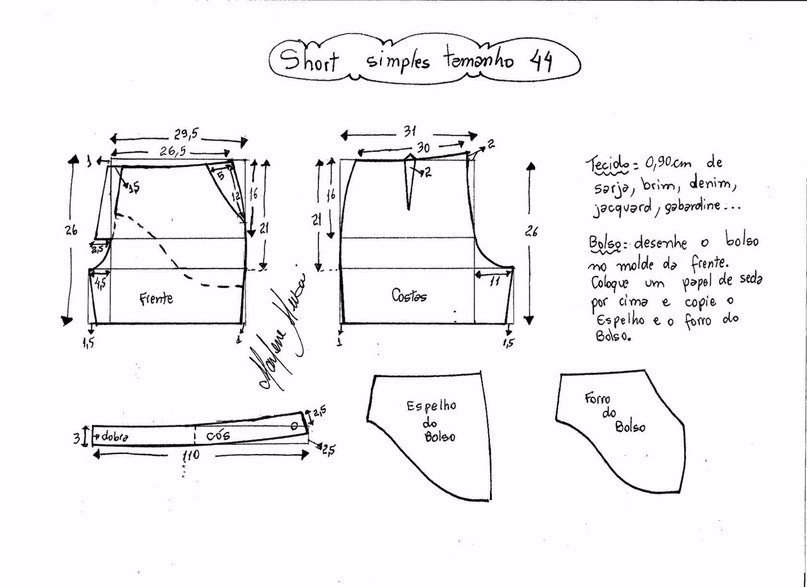 Short simples tamanho 44
29,5
26,5
1
1,5
5
12
16
21
26
2,5
4,5
Frente
1,5
1
31
30
2
2
16
21
26
Costas
11
1
1,5
Tecido: 0,90cm de
sarja, brim, denim,
jacquard, gabardine...
Bolso: desenhe o bolso
no molde da frente.
Coloque um papel de seda
por cima e copie o
Espelho e o forro do
Bolso.
3
dobra
cós
2,5
2,5
110
Espelho
do
Bolso
Forro
do
Bolso